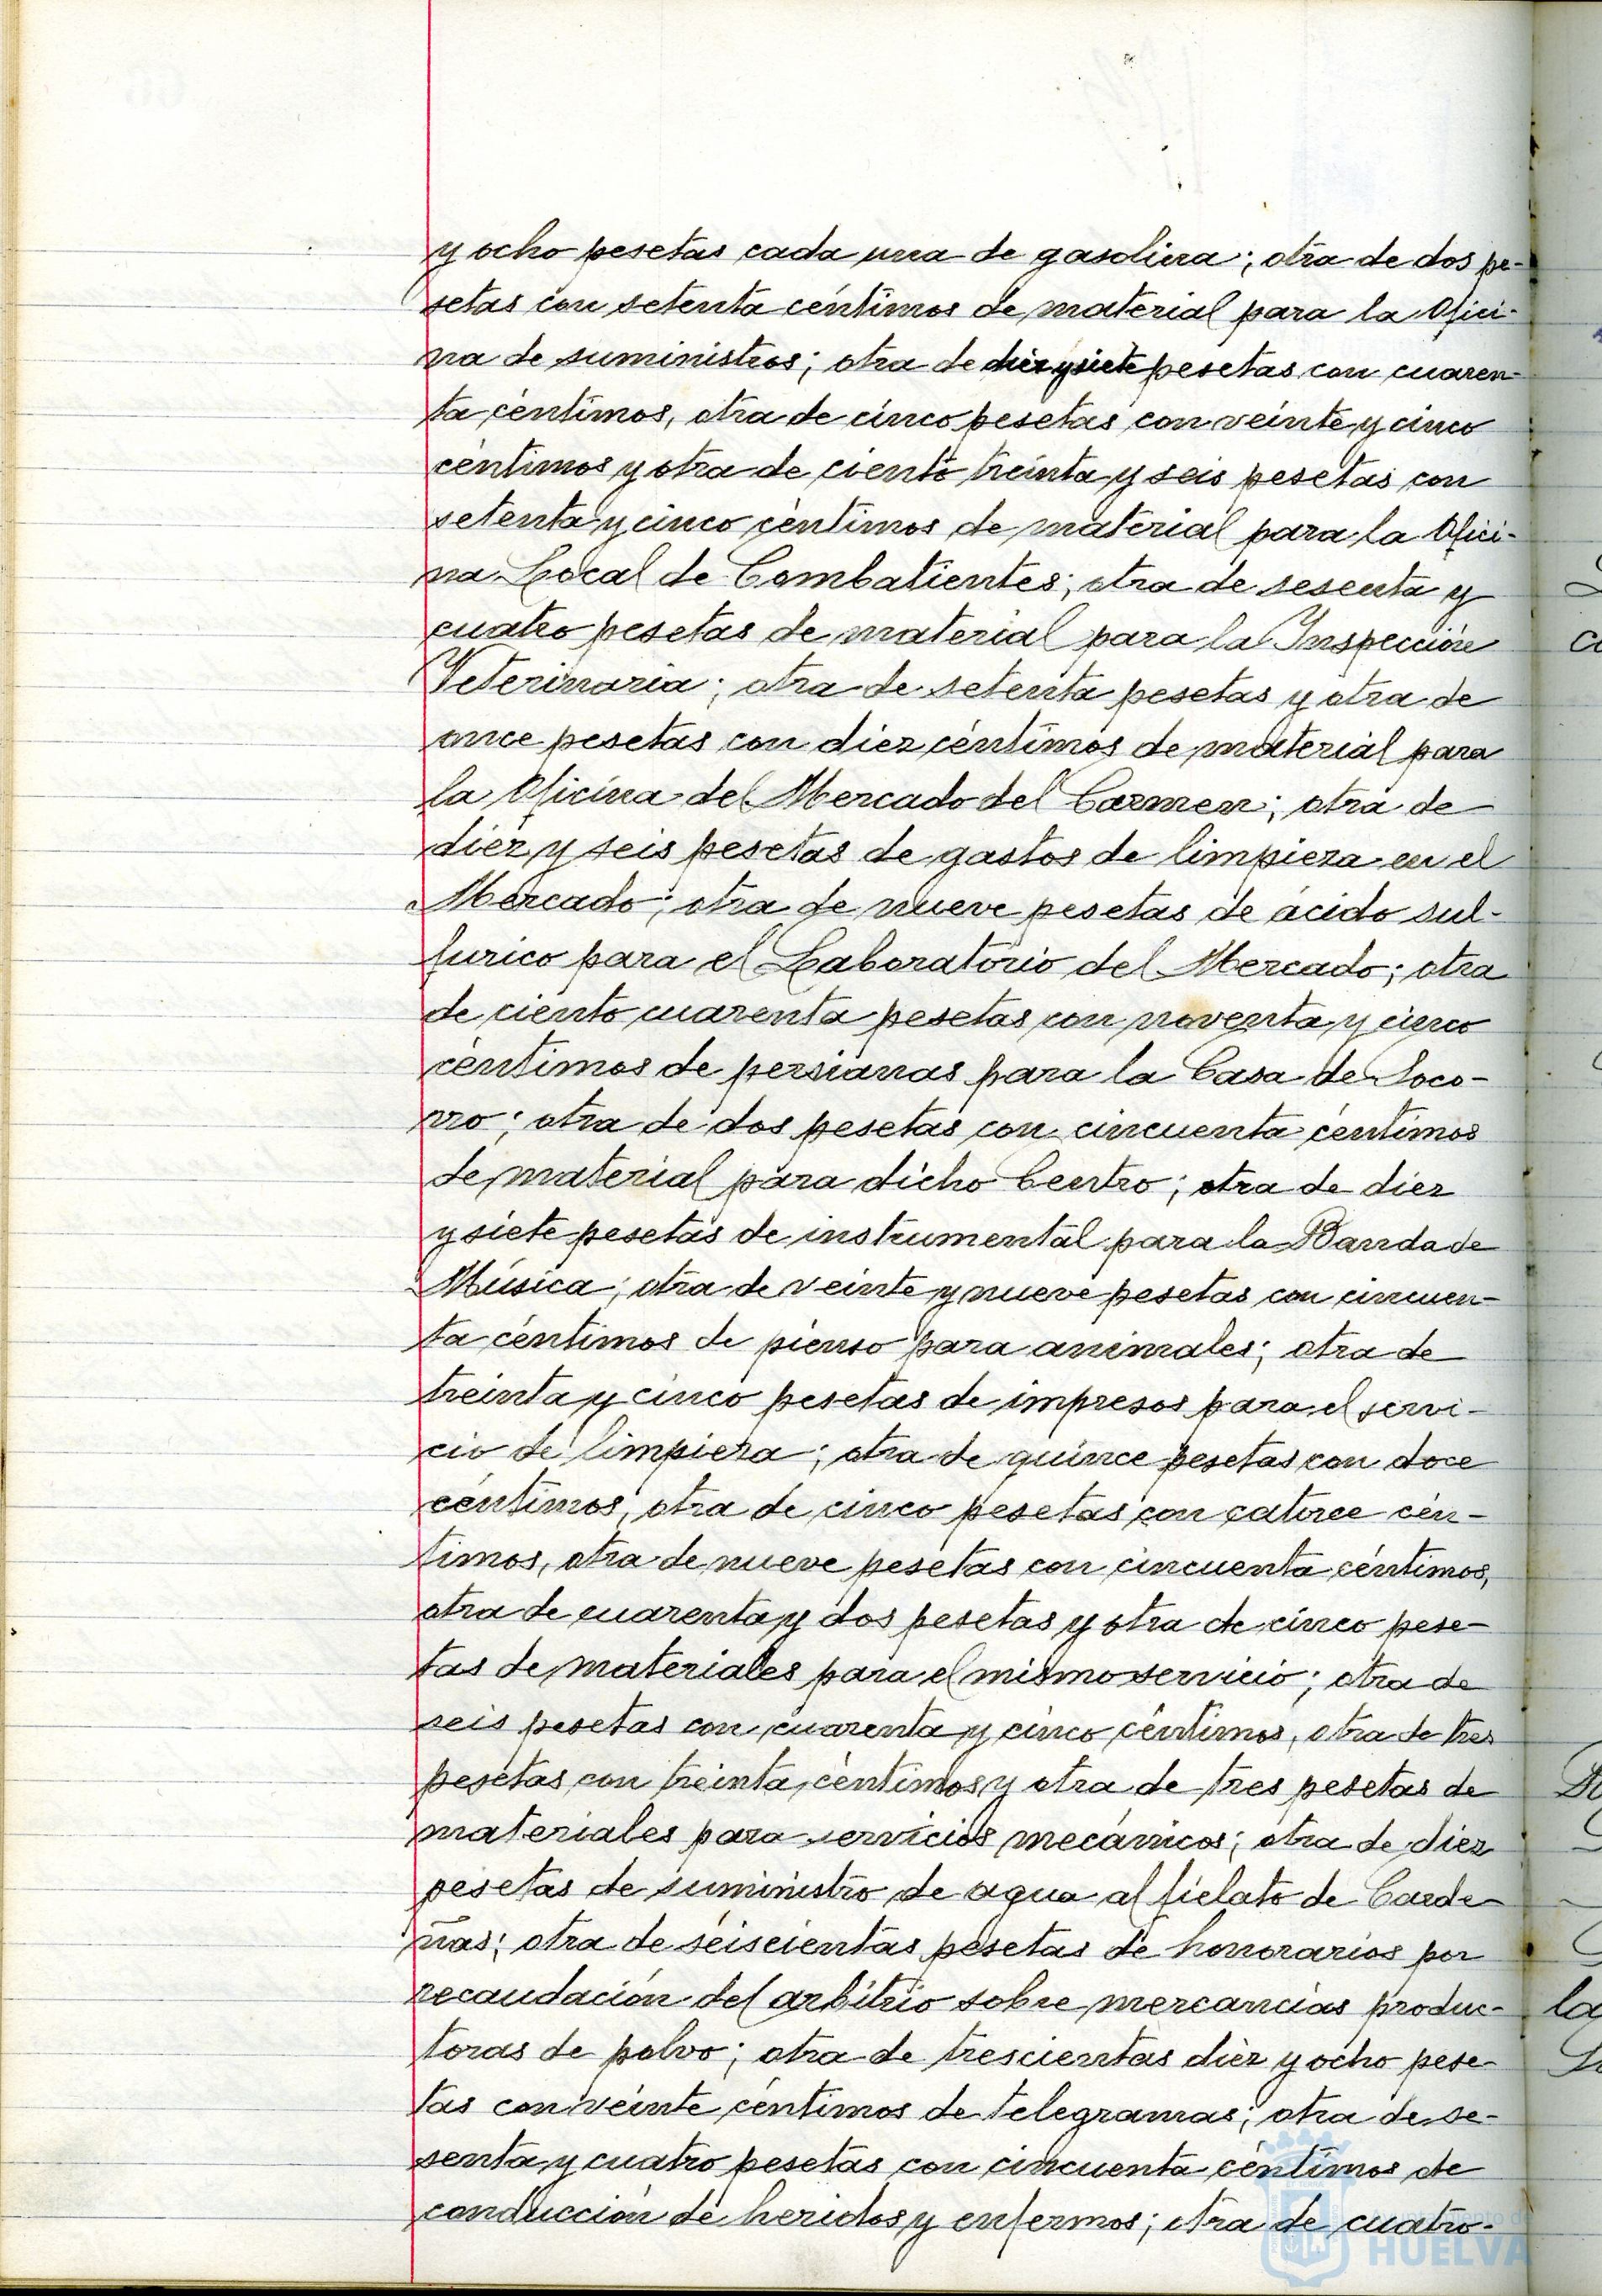 y ocho pesetas cada una de gasolina; otra de dos pe-
setas con setenta céntimos de material para la Ofici-
na de suministros; otra de diez y siete pesetas con cuaren-
ta céntimos, otra de cinco pesetas con veinte y cinco
céntimos y otra de ciento treinta y seis pesetas con
setenta y cinco céntimos de material para la Ofici-
na Local de Combatientes; otra de sesenta y
cuatro pesetas de material para la Inspección
Veterinaria; otra de setenta pesetas y otra de
once pesetas con diez céntimos de material para
la Oficina del Mercado del Carmen; otra de
diez y seis pesetas de gastos de limpieza en el
Mercado; otra de nueve pesetas de ácido sul-
furico para el Laboratorio del Mercado; otra
de ciento cuarenta pesetas con noventa y cinco
céntimos de persianas para la Casa de Soco-
rro; otra de dos pesetas con cincuenta céntimos
de material para dicho Centro; otra de diez
y siete pesetas de instrumental para la Banda de
Música; otra de veinte y nueve pesetas con cincuen-
ta céntimos de pienso para animales; otra de
treinta y cinco pesetas de impresos para el servi-
cio de limpieza; otra de quince pesetas con doce
céntimos, otra de cinco pesetas con catorce cén-
timos, otra de nueve pesetas con cincuenta céntimos,
otra de cuarenta y dos pesetas y otra de cinco pese-
tas de materiales para el mismo servicio; otra de
seis pesetas con cuarenta y cinco céntimos, otra de tres
pesetas con treinta céntimos y otra de tres pesetas de
materiales para servicios mecánicos; otra de diez
pesetas de suministro de agua al fielato de Carde-
ñas; otra de seiscientas pesetas de honorarios por
recaudación del arbitrio sobre mercancías produc-
toras de polvo; otra de trescientas diez y ocho pese-
tas con veinte céntimos de telegramas; otra de se-
senta y cuatro pesetas con cincuenta céntimos de
conducción de heridos y enfermos; otra de cuatro-
HUELVA